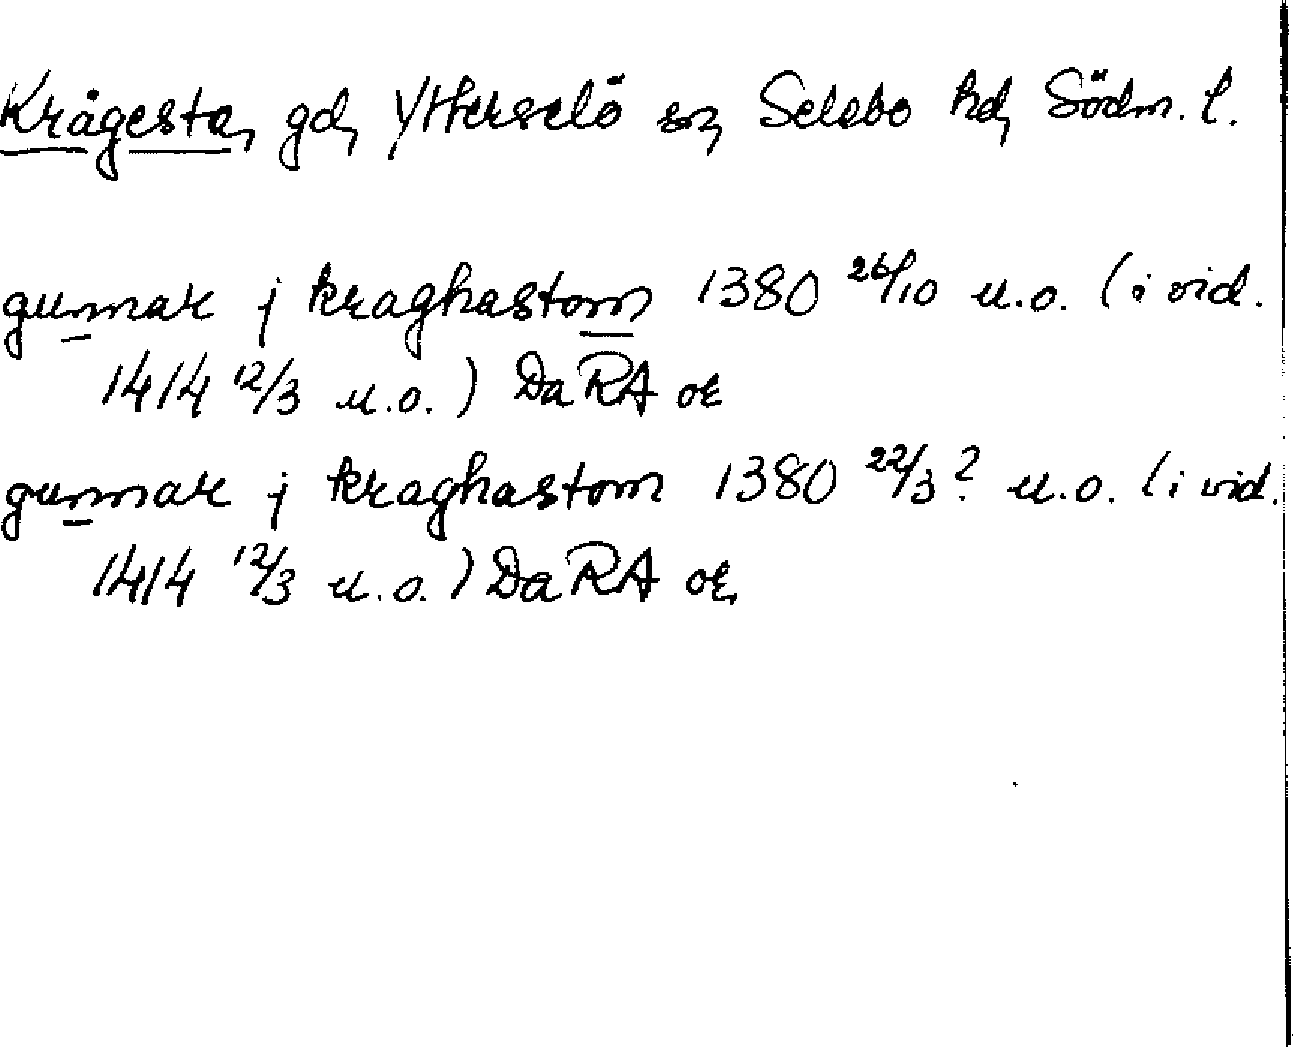 Krågesta, gd, Ytterselö sn, Selebo hd, Södm. l.
gunnar j kraghastom 1380 26/10 u.o. (i vid.
1414 12/3 u.o.) Da RA or
gunnar j kraghastom 1380 22/3? u.o. (i vid.
1414 12/3 u.o.) Da RA or,